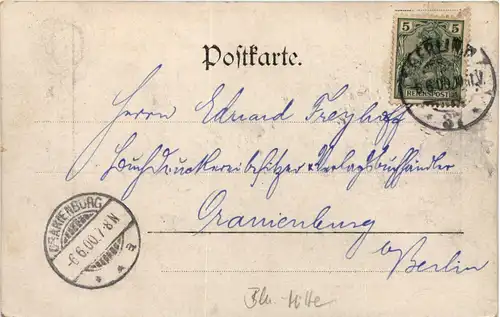 Postkarte.
5 5
REICHSPOST
BERLIN
37
Herrn Eduard Freyhoff
Buchdruckereibesitzer u. Verlagsbuchhändler
Oranienburg
b/Berlin
ORANIENBURG
-6.6.00.7-8N
* a
Bln-Mitte